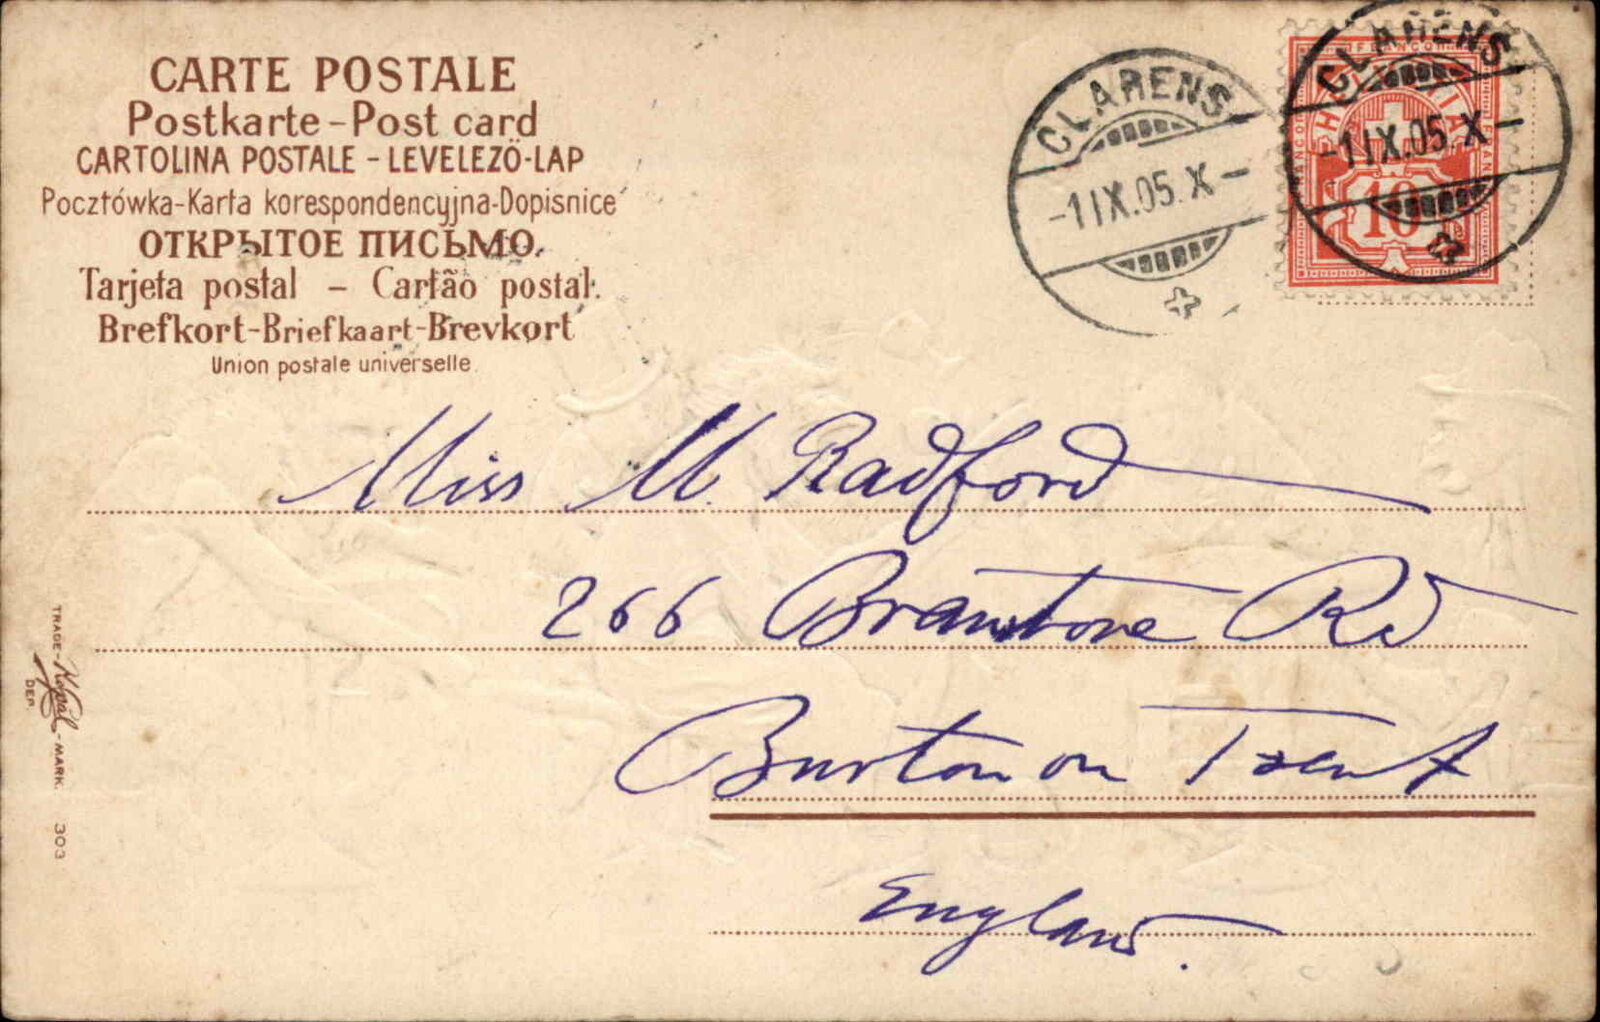 CARTE POSTALE
Postkarte - Post card
CARTOLINA POSTALE - LEVELEZÖ-LAP
Pocztówka-Karta korespondencyjna-Dopisnice
ОТКРЫТОЕ ПИСЬМО.
Tarjeta postal - Cartão postal.
Brefkort-Briefkaart-Brevkort
Union postale universelle.
CLARENS
-1 IX.05.X-
CLARENS
-1 IX.05.X-
FRANCO
HELVETIA
10
Miss M. Radford
266 Branstone Rd
Burton on Trent
England.
TRADE- -MARK
DEP.
303